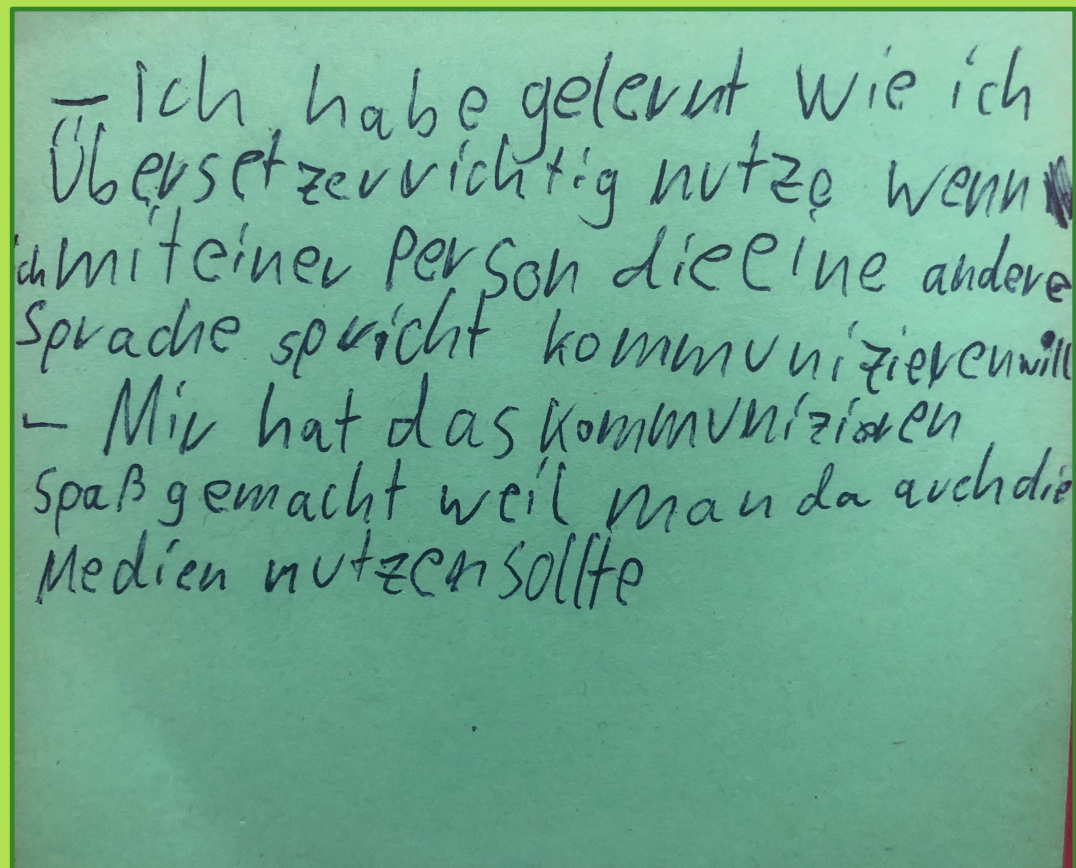 — ich habe gelernt wie ich
Übersetzer richtig nutze wenn
ich mit einer Person die eine andere
Sprache spricht kommunizieren will
– Mir hat das kommunizieren
spaß gemacht weil man da auch die
Medien nutzen sollte